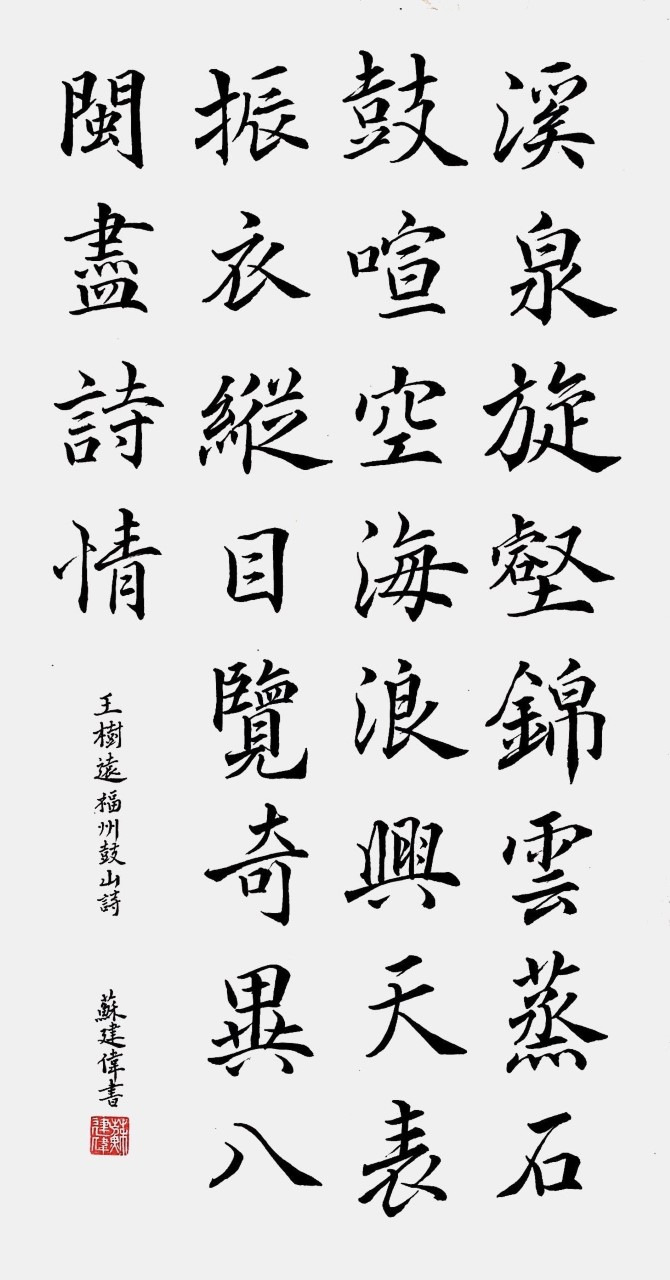 溪泉旋壑錦雲蒸石
鼓喧空海浪興天表
振衣縱目覽奇異八
閩盡詩情
王樹遠福州鼓山詩
蘇建偉書